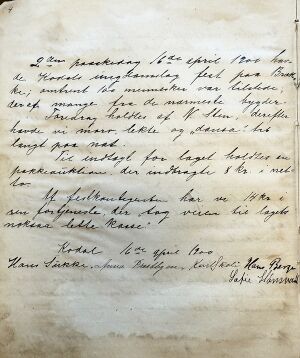 2den paaskedag 16de april 1900 hav-
de Kodals ungdomslag fest paa Bræk-
ke; omtrent 150 mennesker var tilstede,
deraf mange fra de nærmeste bygder.
Foredrag holdtes af N. Sten, derefter
havde vi moro, lekte og "dansa" til
langt paa nat.
Til indtægt for laget holdtes en
pakkeauktion der indbragte 8 kr. i net-
to.
Af festkontigenten har vi 14 kr. i
ren fortjeneste, der stog veien til lagets
nokså lette kasse.
Kodal 16de april 1900
Hans Karl Skoli Hans Berge
Sofie